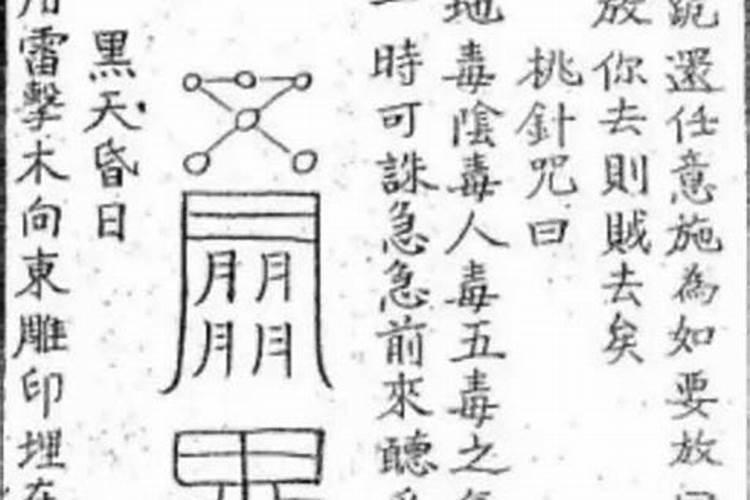 跪還任意施為如要放
放你去則賊去矣
桃針咒曰
地毒陰毒人毒五毒之
一時可誅急急前來聽
月月
月月
黑天昏日
用雷擊木向東雕印埋在